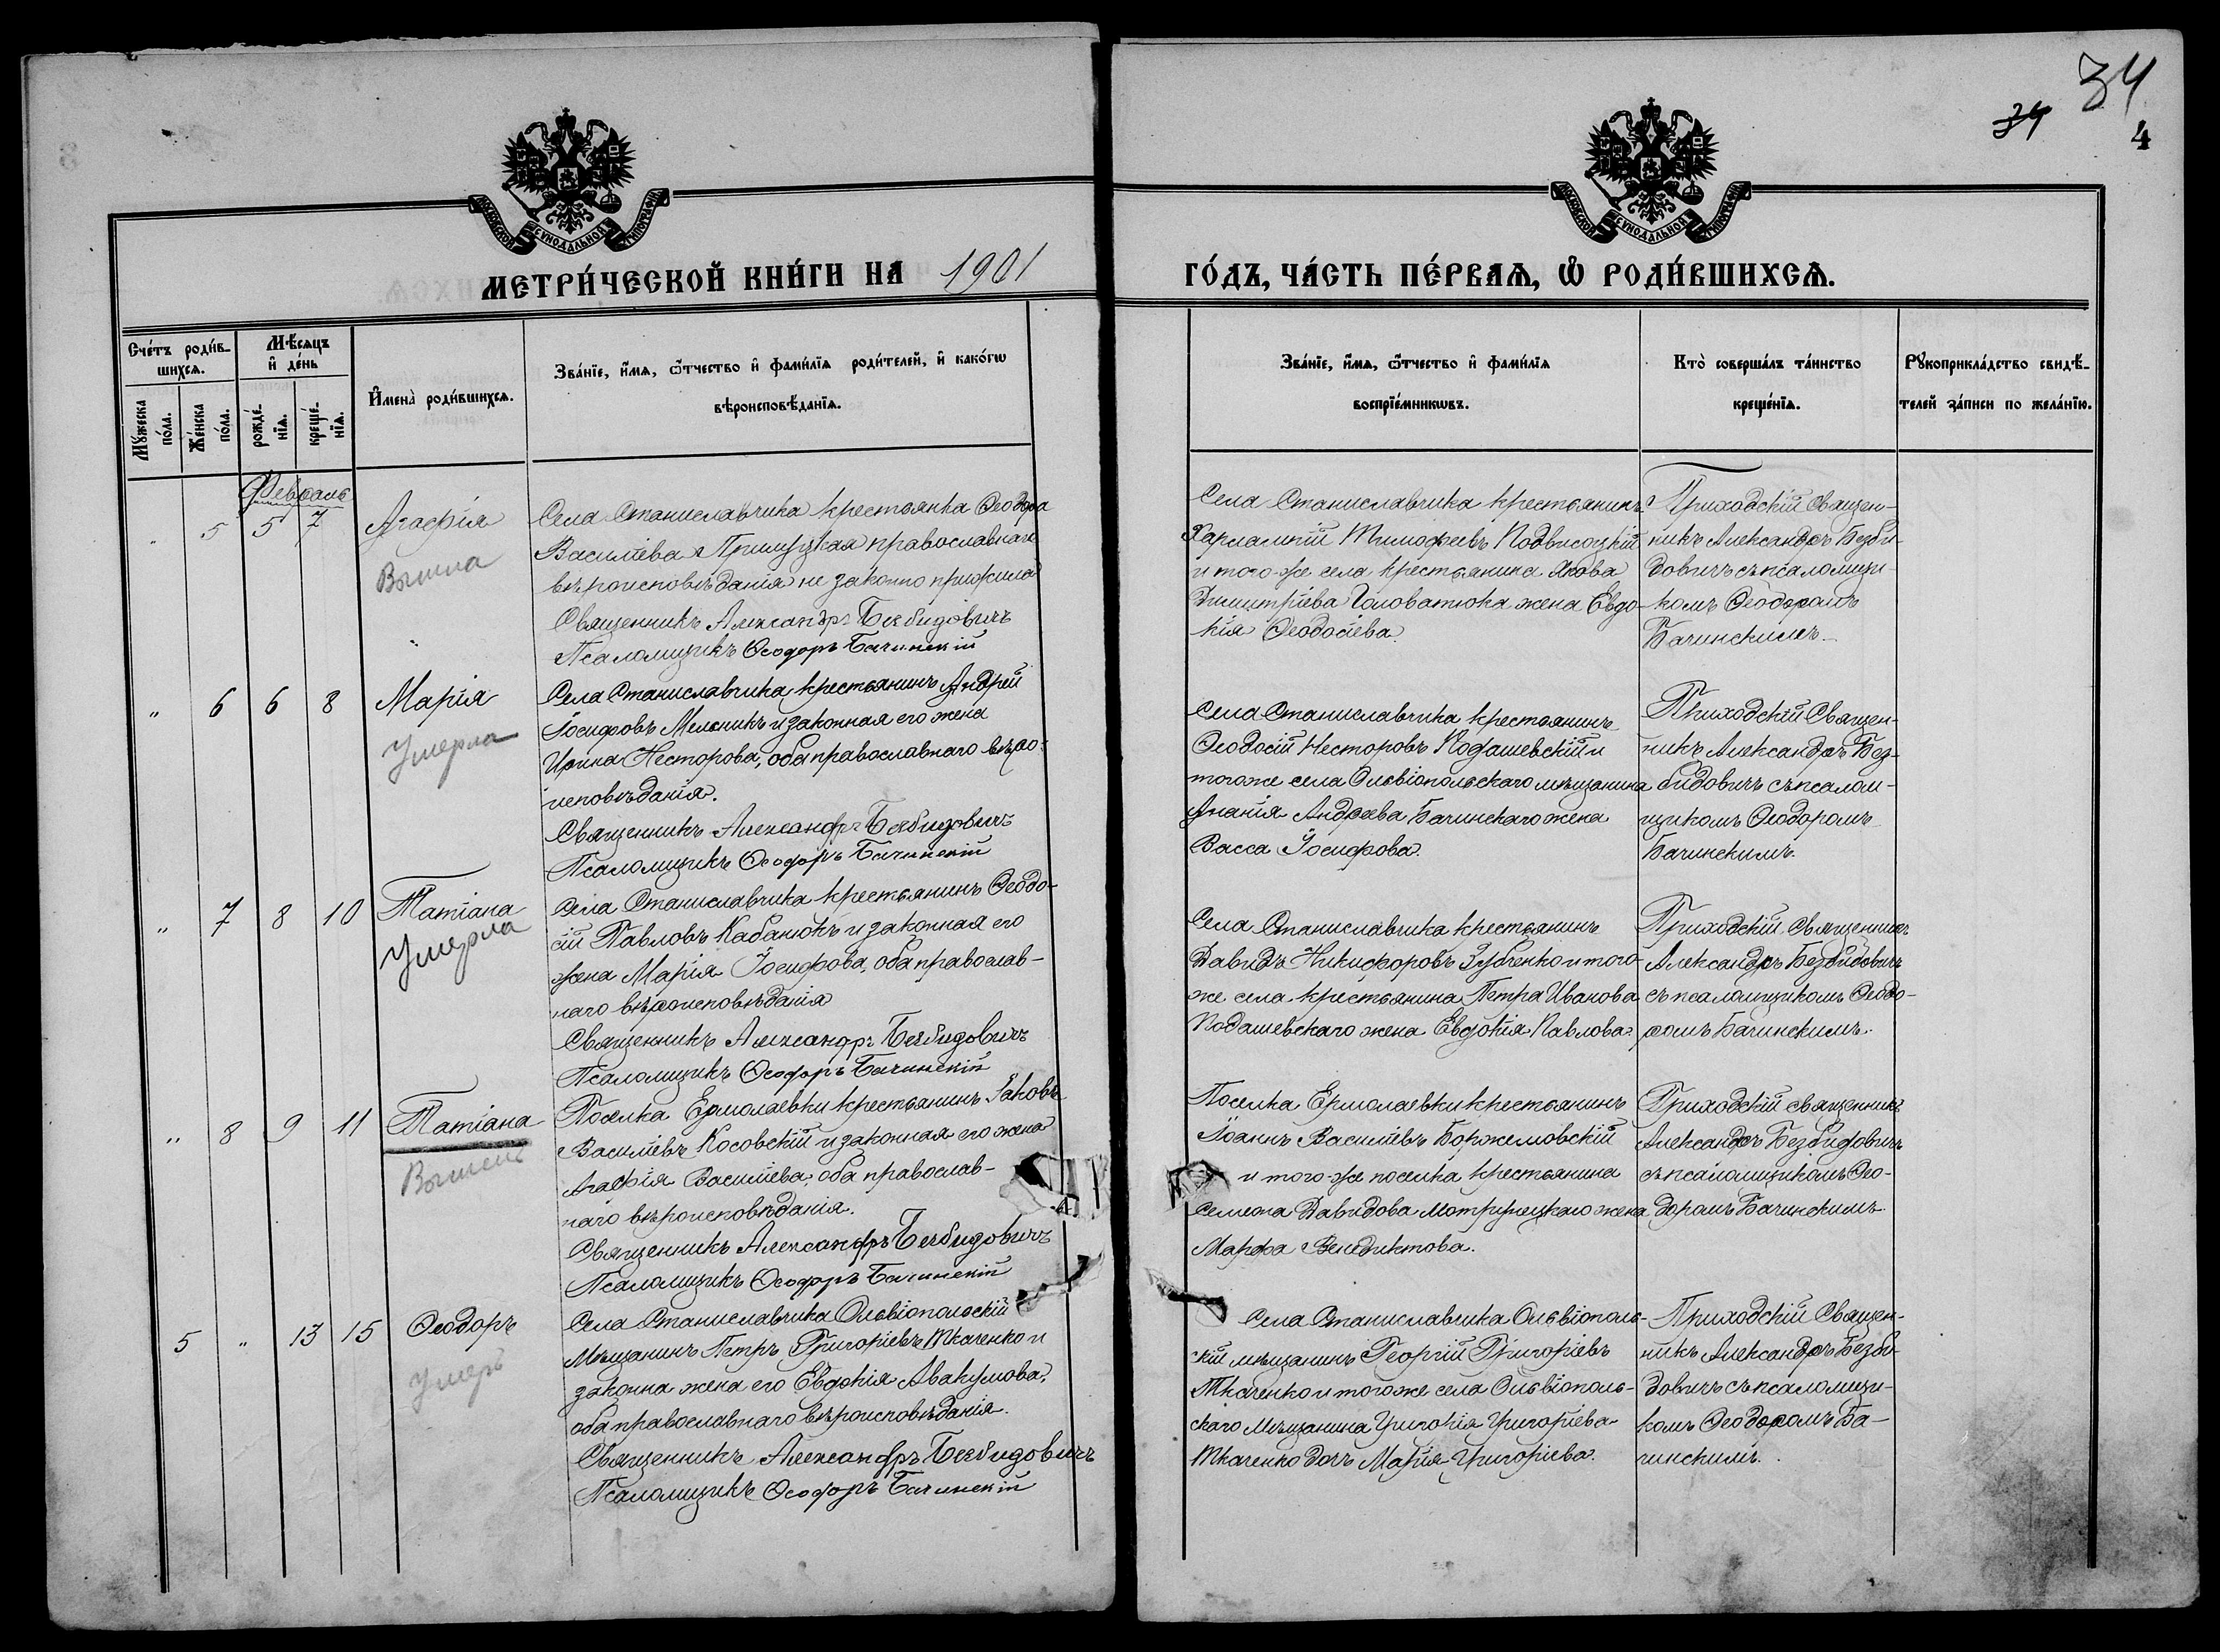 34
34
4
МОСКОВСКОЙ СУНОДАЛЬНОЙ ТИПОГРАФІИ
МОСКОВСКОЙ СУНОДАЛЬНОЙ ТИПОГРАФІИ
МЕТРИ́ЧЕСКОЙ КНИ́ГИ НА 1901
ГО́ДЪ, ЧА́СТЬ ПЕ́РВАѦ, Ѡ РОДИ́ВШИХСѦ.
Сче́тъ роди́в-
шихсѧ.
Мꙋжеска
по́ла.
Же́нска
по́ла.
Мѣ́сѧцъ
и҆ де́нь
рожде́-
нїѧ.
креще́-
нїѧ.
И҆мена̀ роди́вшихсѧ.
Зва́нїе, и҆́мѧ, ѻ҆́тчество и҆ фами́лїѧ роди́телей, и҆ како́гѡ
вѣроисповѣ́данїѧ.
Зва́нїе, и҆́мѧ, ѻ҆́тчество и҆ фами́лїѧ
воспрїе́мникѡвъ.
Кто̀ соверша́лъ та́инство
креще́нїѧ.
Рꙋкоприкла́дство свидѣ́-
телей за́писи по жела́нїю.
Февраль
" 5 5 7 Агафія
Вышла
Села Станиславчика крестьянка Ѳеодора
Василіева Прилуцкая православнаго
вѣроисповѣданія не законно прижила
Священникъ Александръ Безбидовичъ
Псаломщикъ Ѳеодоръ Бачинскій
Села Станиславчика крестьянинъ
Харлампій Тимофеевъ Подвысоцкій
и того-же села крестьянина Якова
Димитріева Головатюка жена Евдо-
кія Ѳеодосіева.
Приходскій Священ-
никъ Александръ Безби-
довичъ съ псаломщи-
комъ Ѳеодоромъ
Бачинскимъ.
" 6 6 8 Марія
Умерла
Села Станиславчика крестьянинъ Андрей
Іосифовъ Мельникъ и законная его жена
Ирина Несторова, оба православнаго вѣро-
исповѣданія.
Священникъ Александръ Безбидовичъ
Псаломщикъ Ѳеодоръ Бачинскій
Села Станиславчика крестьянинъ
Ѳеодосій Несторовъ Подашевскій и
того же села Ольвіопольскаго мѣщанина
Ананія Андреева Бачинскаго жена
Васса Іосифова.
Приходскій Священ-
никъ Александръ Без-
бидовичъ съ псалом-
щикомъ Ѳеодоромъ
Бачинскимъ.
" 7 8 10 Татіана
Умерла
Села Станиславчика крестьянинъ Ѳеодо-
сій Павловъ Кабанюкъ и законная его
жена Марія Іосифова, оба православ-
наго вѣроисповѣданія
Священникъ Александръ Безбидовичъ
Псаломщикъ Ѳеодоръ Бачинскій
Села Станиславчика крестьянинъ
Давидъ Никифоровъ Зубченко и того-
же села крестьянина Петра Иванова
Подашевскаго жена Евдокія Павлова.
Приходскій Священникъ
Александръ Безбидовичъ
съ псаломщикомъ Ѳеодо-
ромъ Бачинскимъ.
" 8 9 11 Татіана
Поселка Ермолаевки крестьянинъ Іаковъ
Василіевъ Косовскій и законная его жена
Агафія Василіева, оба православ-
наго вѣроисповѣданія.
Священникъ Александръ Безбидовичъ
Псаломщикъ Ѳеодоръ Бачинскій
Поселка Ермолаевки крестьянинъ
Іоаннъ Василіевъ Боржемовскій
и того-же поселка крестьянина
Семеона Давидова жена
Марфа Венедиктова.
Приходскій священникъ
Александръ Безбидовичъ
съ псаломщикомъ Ѳео-
доромъ Бачинскимъ.
5 " 13 15 Ѳеодоръ
Умеръ
Села Станиславчика Ольвіопольскій
Мѣщанинъ Петръ Григоріевъ Ткаченко и
законна жена его Евдокія Авакумова,
оба православнаго вѣроисповѣданія.
Священникъ Александръ Безбидовичъ
Псаломщикъ Ѳеодоръ Бачинскій
Села Станиславчика Ольвіополь-
скій мѣщанинъ Георгій Григоріевъ
Ткаченко и того же села Ольвіополь-
скаго Мѣщанина Григорія Григоріева
Ткаченко дочь Марія Григоріева.
Приходскій Священ-
никъ Александръ Безби-
довичъ съ псаломщи-
комъ Ѳеодоромъ Ба-
чинскимъ.